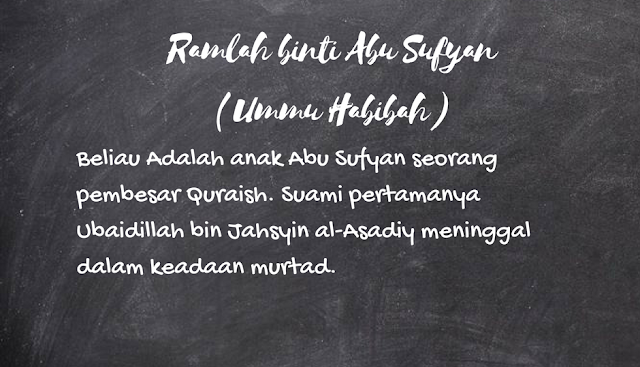 Ramlah binti Abu Sufyan
( Ummu Habibah )
Beliau Adalah anak Abu Sufyan seorang
pembesar Quraish. Suami pertamanya
Ubaidillah bin Jahsyin al-Asadiy meninggal
dalam keadaan murtad.